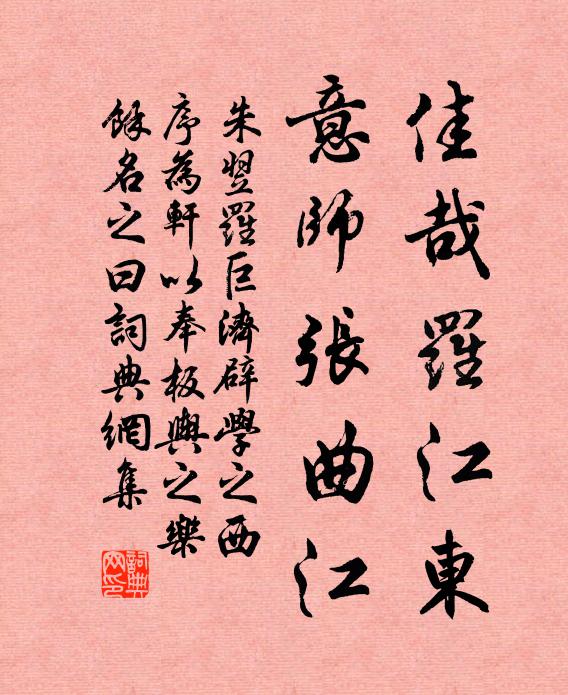 佳哉羅江東
意師張曲江
朱翌羅巨濟辟學之西
序為軒以奉板輿之樂
餘名之曰詞典網集
詞典网印